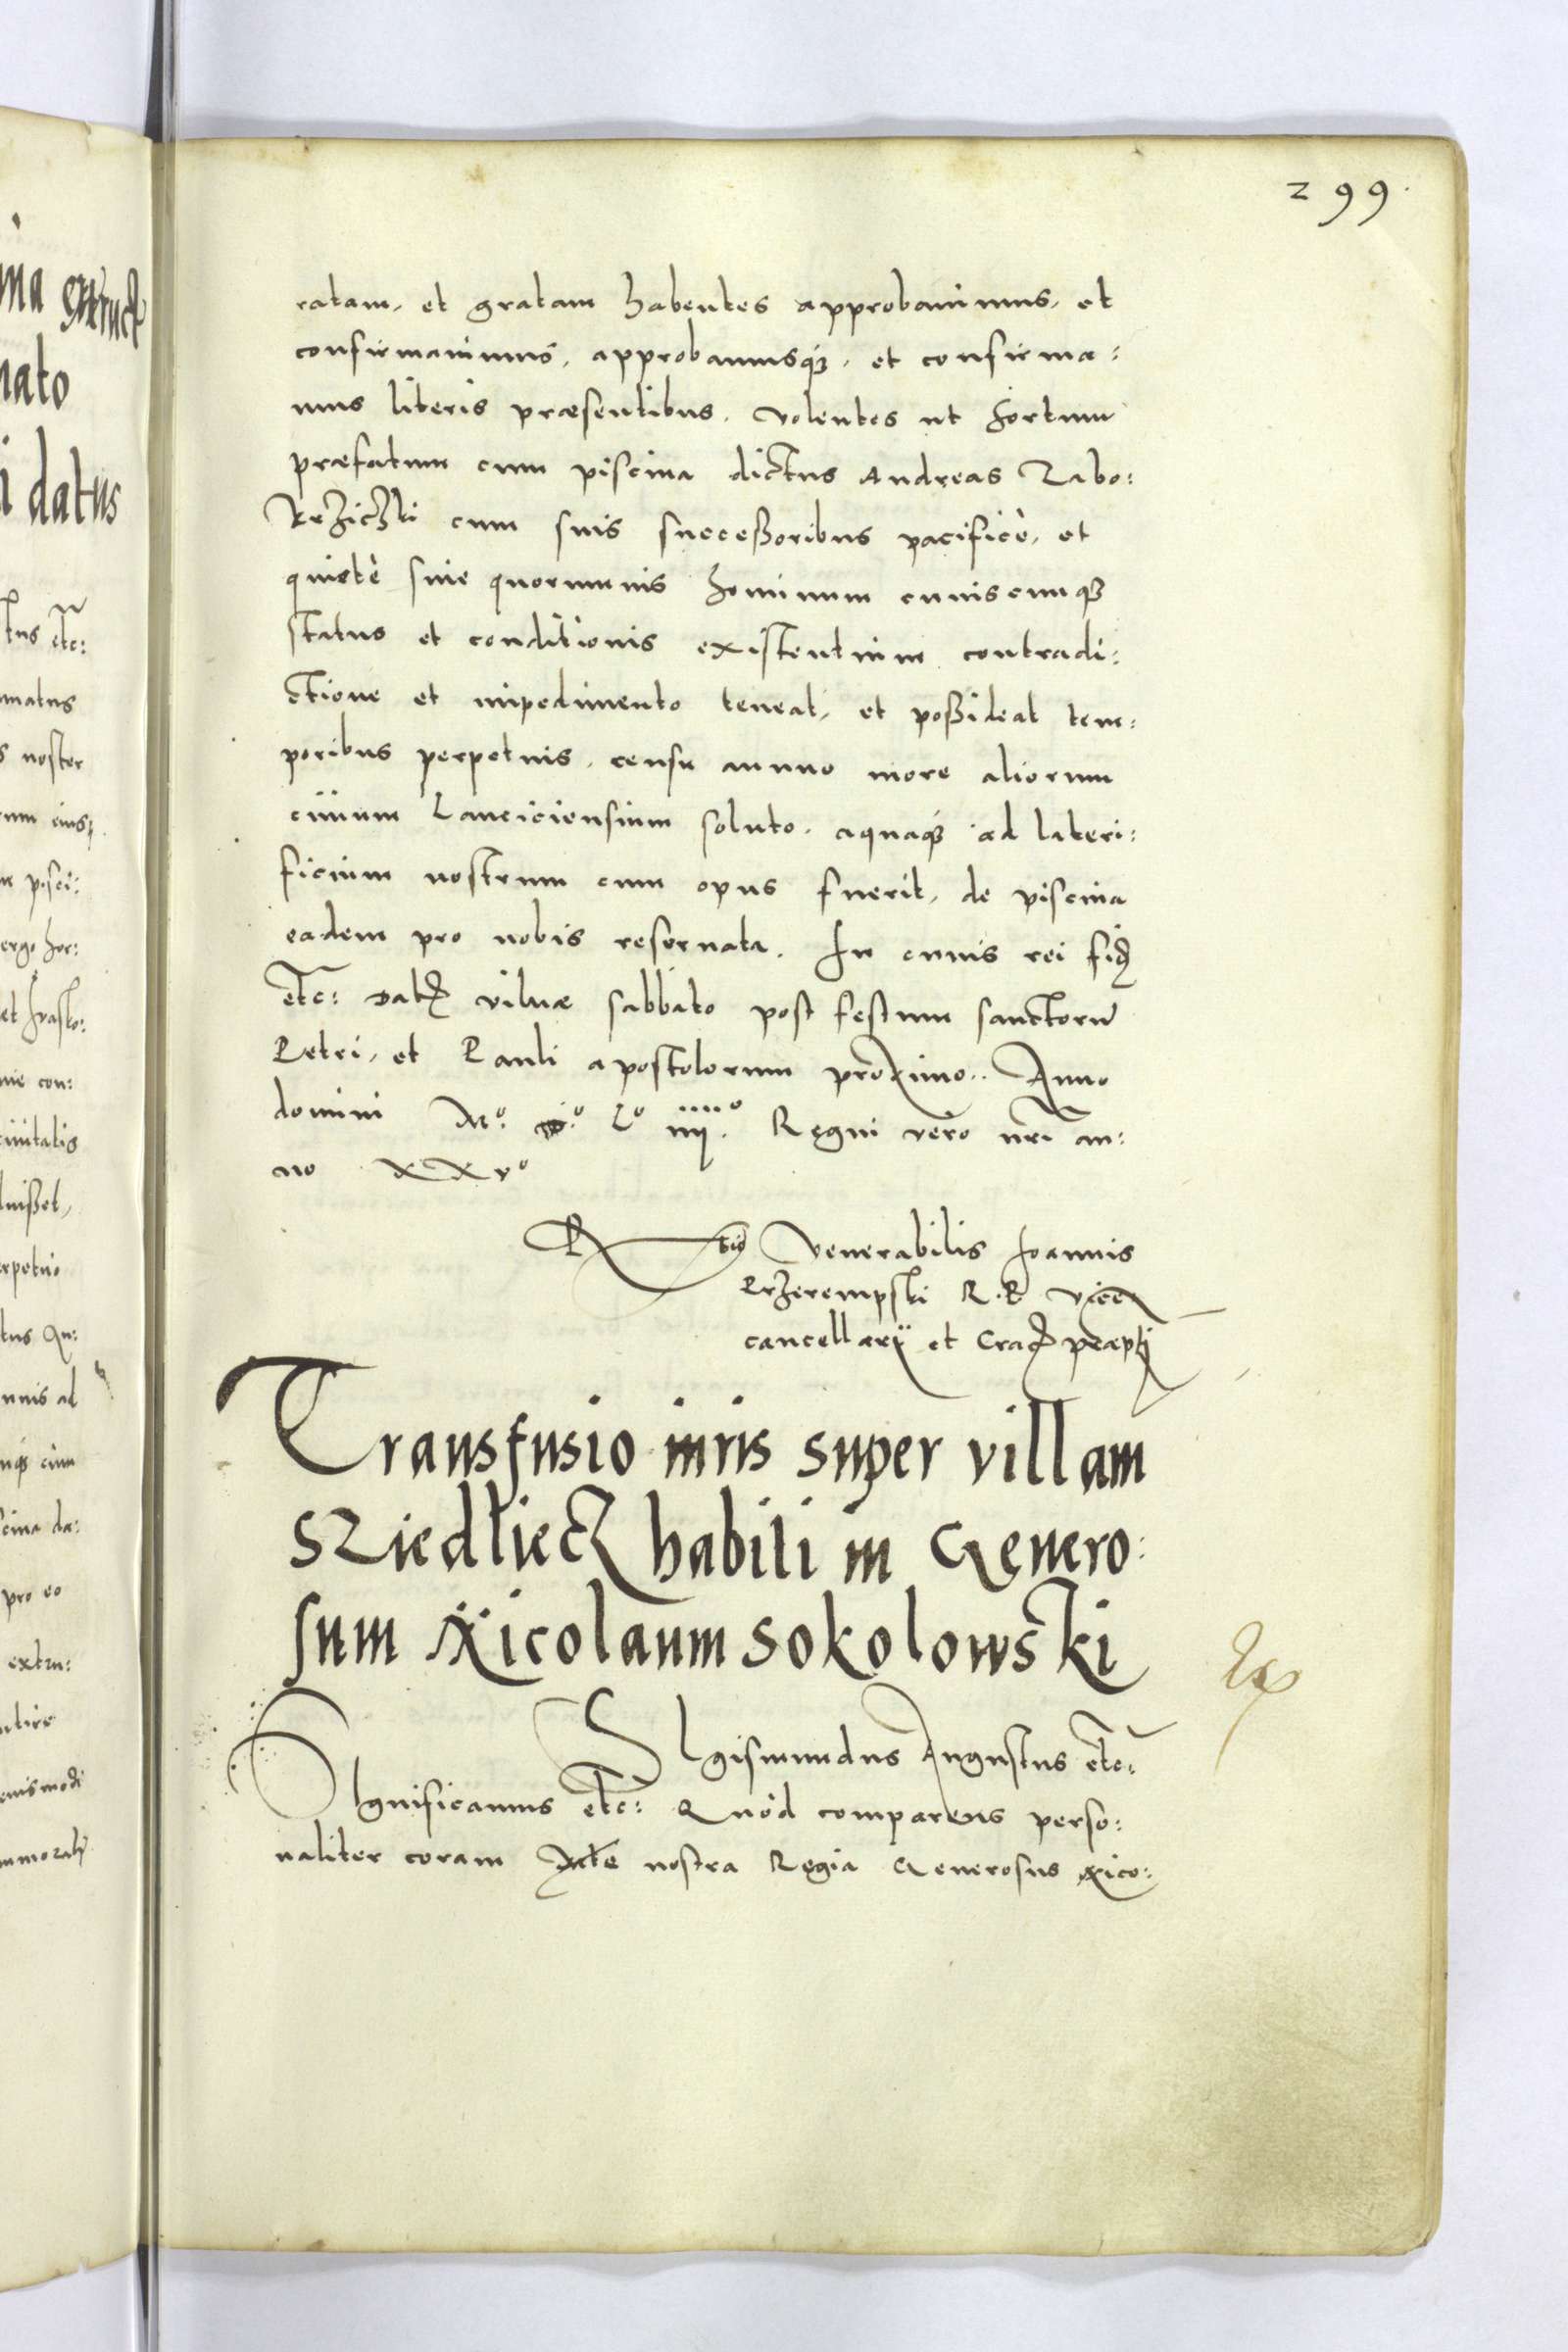 299.
ratam, et gratam habentes approbauimus, et
confirmauimus, approbamusq3, et confirma:
mus literis praesentibus. Volentes ut hortum
praefatum cum piscina dictus Andreas Zabo:
krziczki cum suis succeßoribus pacificè, et
quietè siue quorumuis hominum cuiuscunq3
status et conditionis existentium contradi:
ctione et impedimento teneat, et poßideat tem:
poribus perpetuis, censu annuo more aliorum
ciuium Lanciciensium soluto. aquaq3 ad lateri:
ficium nostrum cum opus fuerit, de piscina
eadem pro nobis reseruata. In cuius rei fid
etc: Dat vilnae sabbato post festum sanctorū
Petri, et Pauli apostolorum proximo. Anno
domini Mº. Dº. Lº iiijº. Regni vero nri an:
no XXvº
Rtio Venerabilis Joannis
Przerempski R. P. Vice
cancellarij et Crac praepti
Transfusio iuris super villam
SZiedlieck habiti in Genero:
sum Nicolaum Sokolowski
SIgismundus Augustus etc:
SIgnificamus etc: Quòd comparens perso:
naliter coram Mte nostra Regia Generosus Nico: